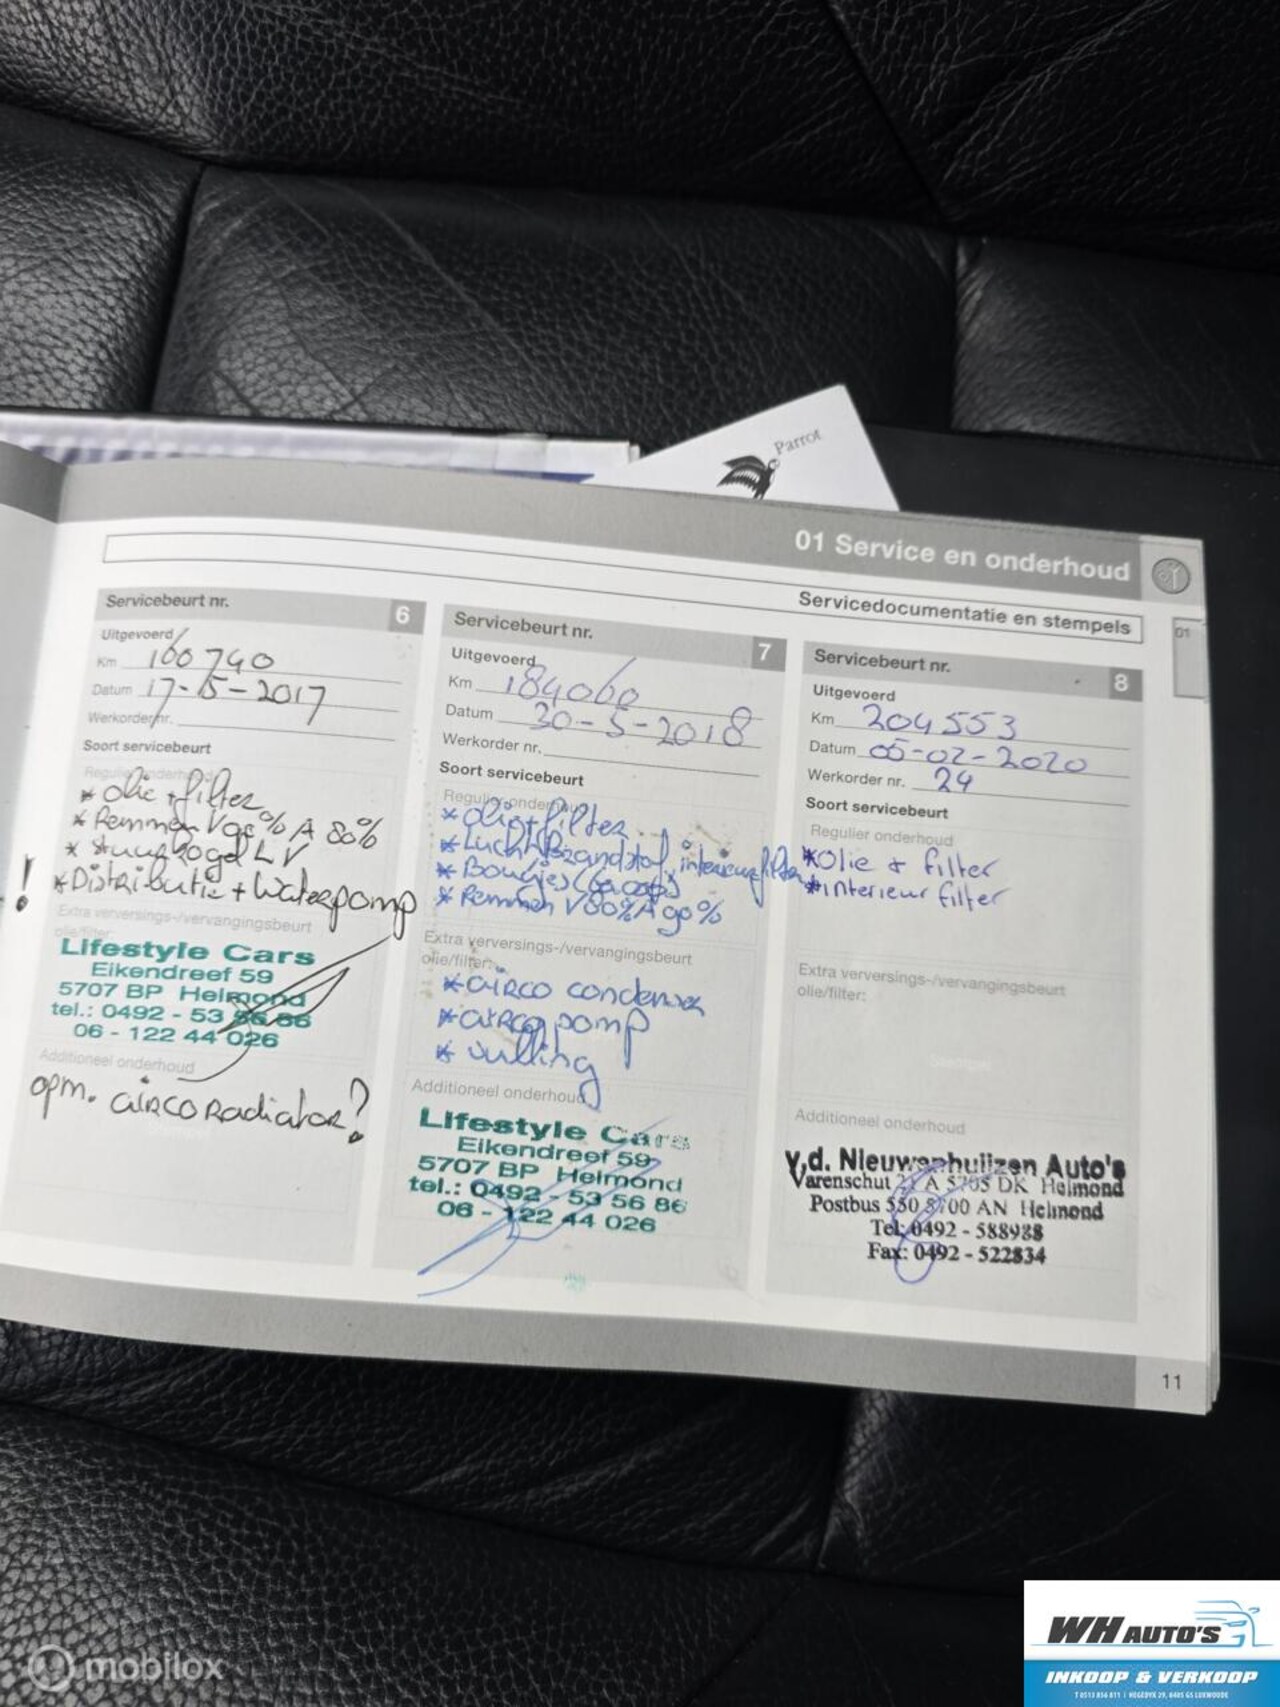 Parrot
01 Service en onderhoud
Servicedocumentatie en stempels
01
Servicebeurt nr.
6
Uitgevoerd
Km 160740
Datum 17-5-2017
Werkorder nr.
Soort servicebeurt
Regulier onderhoud
* Olie + filter
* Remmen V 90% A 80%
* Stuurkogel LV
! * Distributie + Waterpomp
Extra verversings-/vervangingsbeurt
olie/filter:
Lifestyle Cars
Eikendreef 59
5707 BP Helmond
tel.: 0492 - 53 56 86
06 - 122 44 026
Additioneel onderhoud
opm. airco radiator?
Servicebeurt nr.
7
Uitgevoerd
Km 184060
Datum 30-5-2018
Werkorder nr.
Soort servicebeurt
Regulier onderhoud
* Olie + filter
* Lucht, Brandstof, interieurfilter
* Bougies
* Remmen V 80% A 90%
Extra verversings-/vervangingsbeurt
olie/filter:
* airco condensor
* airco pomp
* vulling
Additioneel onderhoud
Lifestyle Cars
Eikendreef 59
5707 BP Helmond
tel.: 0492 - 53 56 86
06 - 122 44 026
Servicebeurt nr.
8
Uitgevoerd
Km 204553
Datum 05-02-2020
Werkorder nr. 24
Soort servicebeurt
Regulier onderhoud
* Olie + filter
* interieur filter
Extra verversings-/vervangingsbeurt
olie/filter:
Additioneel onderhoud
v.d. Nieuwenhuijzen Auto's
Varenschut 21 A 5705 DK Helmond
Postbus 550 5700 AN Helmond
Tel: 0492 - 588988
Fax: 0492 - 522834
11
mobilox
WH AUTO'S
INKOOP & VERKOOP
T 0513 856 811 | HEGEDYK 29, 8405 GS LUXWOUDE